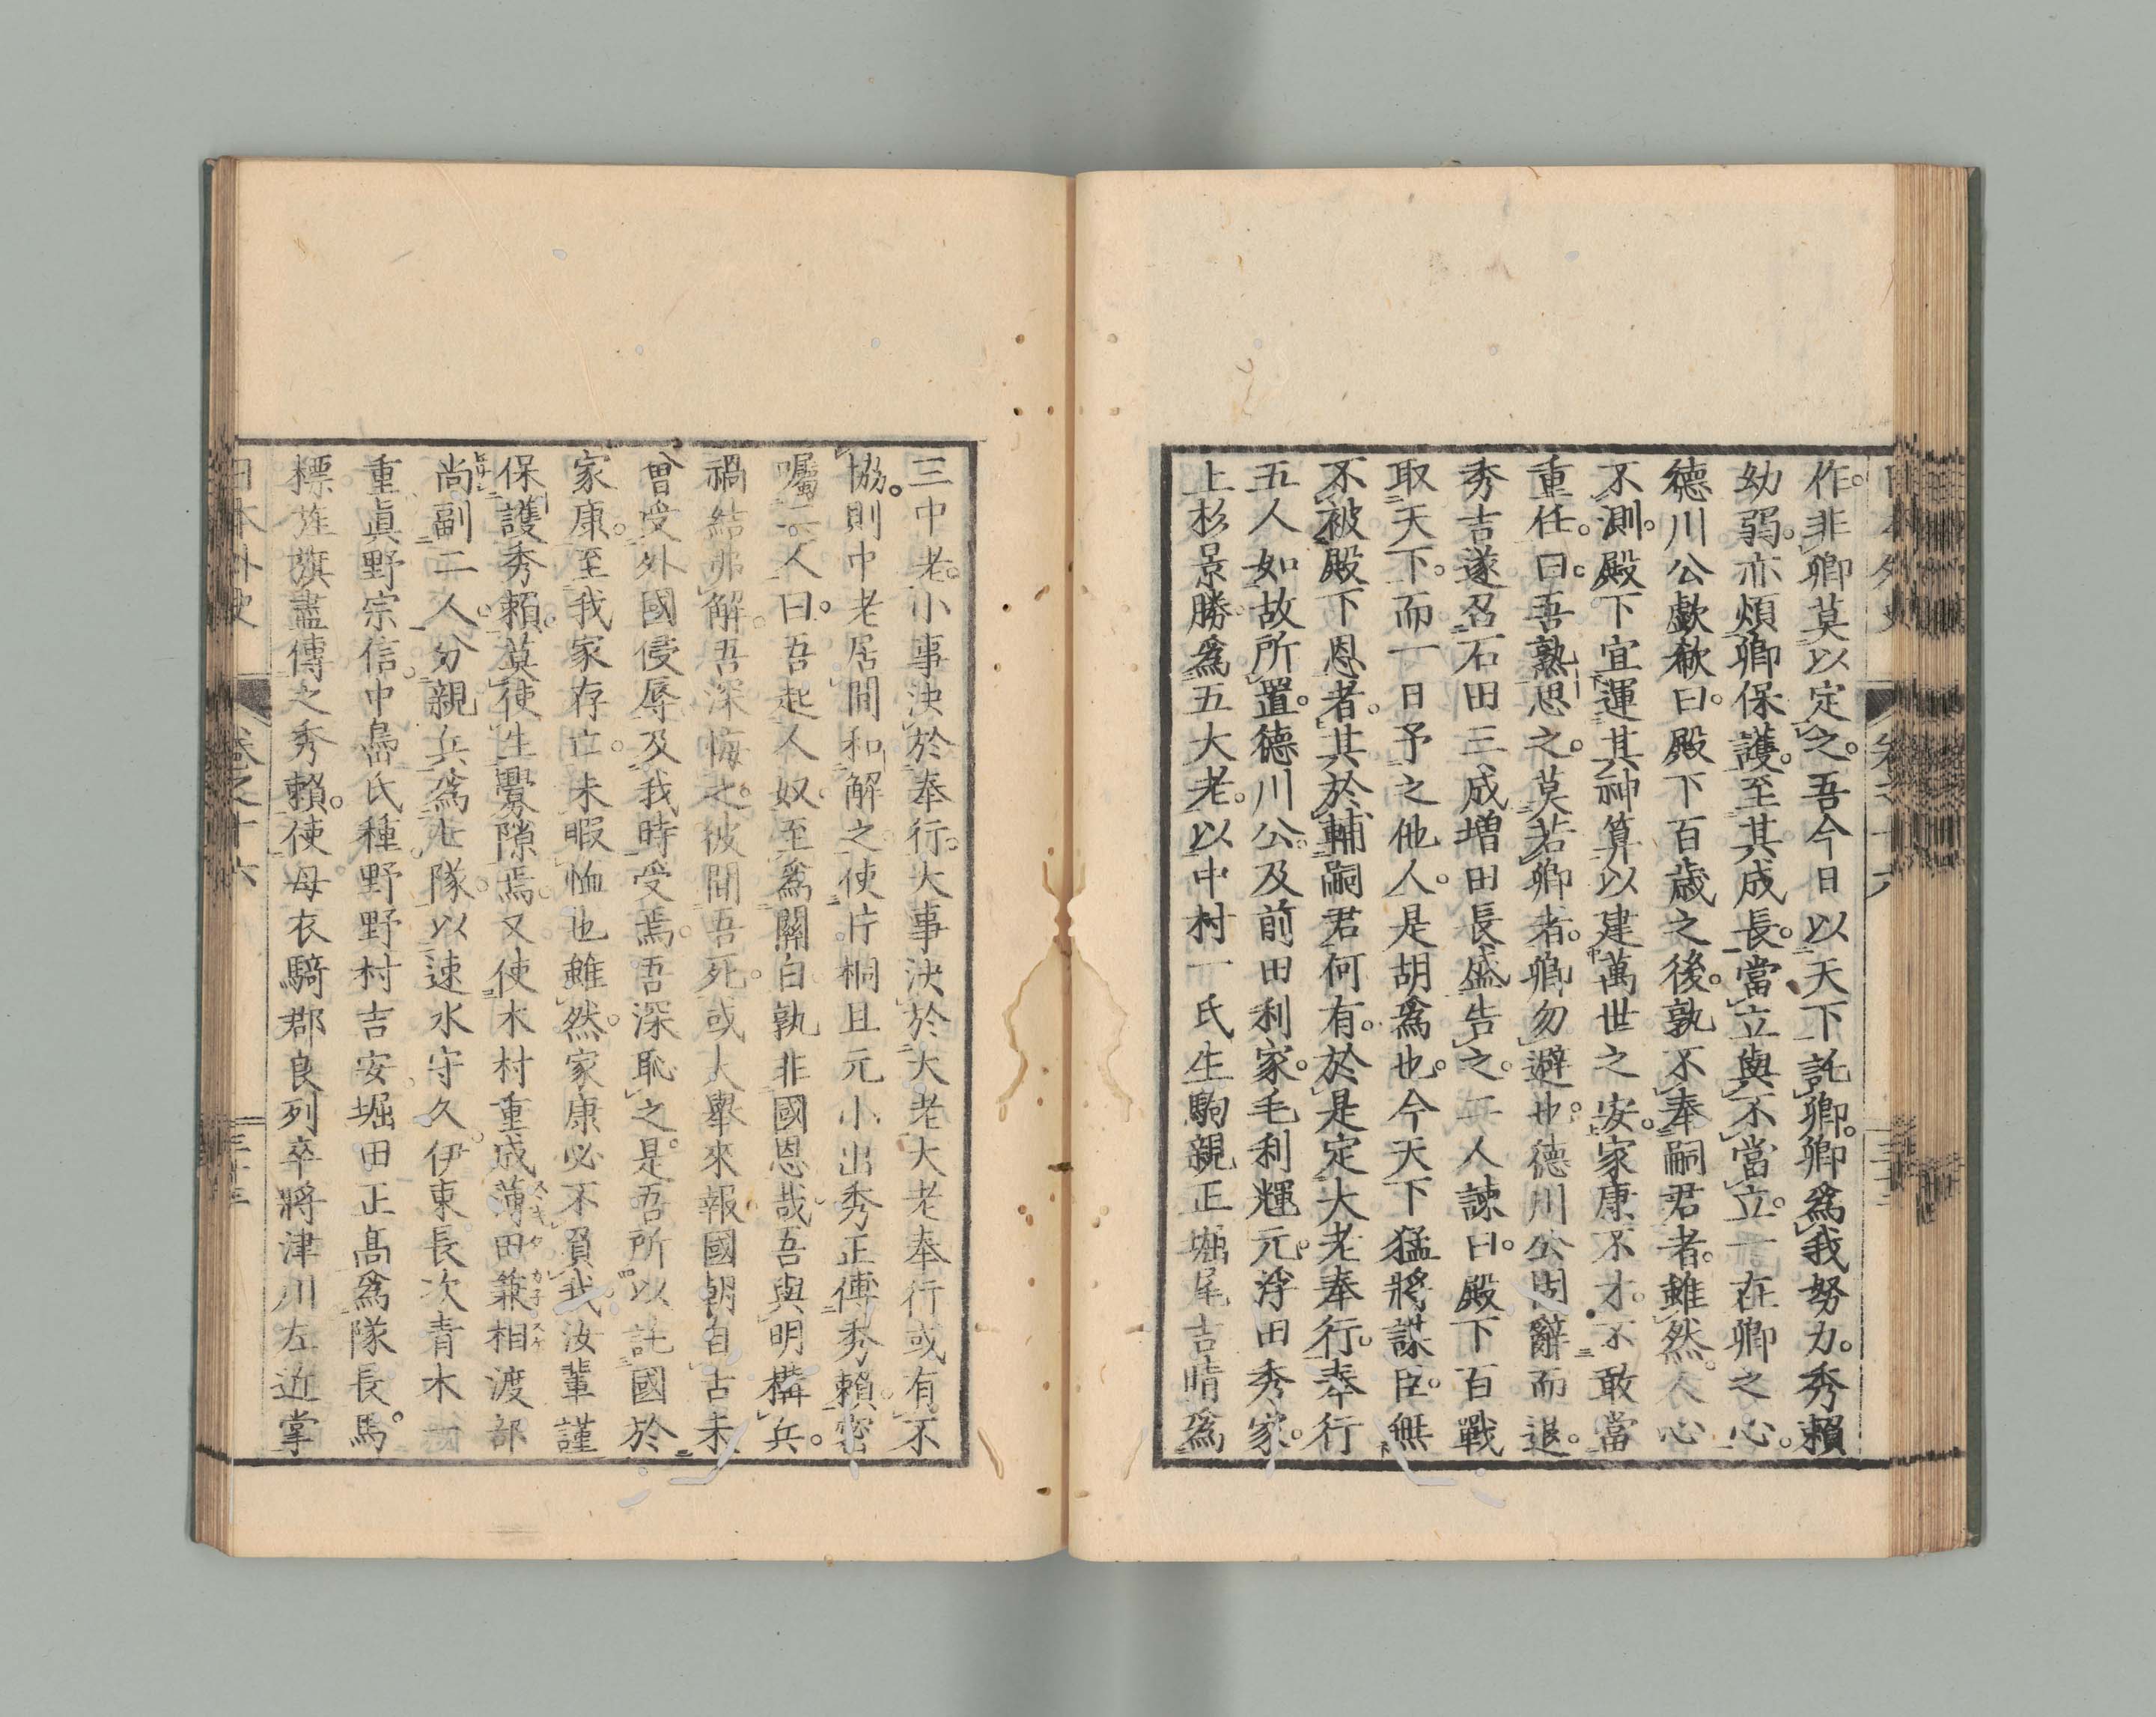 作。非卿莫以定之。吾今日以天下託卿。卿爲我努力。秀賴
幼弱。亦煩卿保護。至其成長。當立與不當立。一在卿之心。
德川公歔欷曰。殿下百歲之後。孰不奉嗣君者。雖然。人心
不測。殿下宜運其神算以建萬世之安。家康不才。不敢當
重任。曰。吾熟思之。莫若卿者。卿勿避也。德川公固辭而退。
秀吉遂召石田三成增田長盛告之。二人諫曰。殿下百戰
取天下。而一日予之他人。是胡爲也。今天下猛將謀臣。無
不被殿下恩者。其於輔嗣君何有。於是定大老奉行。奉行
五人如故所置。德川公。及前田利家。毛利輝元。浮田秀家。
上杉景勝。爲五大老。以中村一氏生駒親正堀尾吉晴爲
三中老。小事決於奉行。大事決於大老。大老奉行或有不
協。則中老居間和解之。使片桐且元小出秀正傅秀賴。密
囑二人曰。吾起人奴。至爲關白。孰非國恩哉。吾與明構兵。
禍結弗解。吾深悔之。彼聞吾死。或大舉來報。國朝自古未
曾受外國侵辱。及我時受焉。吾深恥之。是吾所以託國於
家康。至我家存亡。未暇恤也。雖然。家康必不負我。汝輩謹
保護秀賴。莫使生釁隙焉。又使木村重成薄田兼相渡部
尚副二人。分親兵爲七隊。以速水守久。伊東長次。青木一
重眞野宗信。中島氏種。野野村吉安。堀田正高爲隊長。馬
標旌旗盡傳之秀賴。使母衣騎郡良列卒將津川左近掌
日本外史 卷之十六 三十三